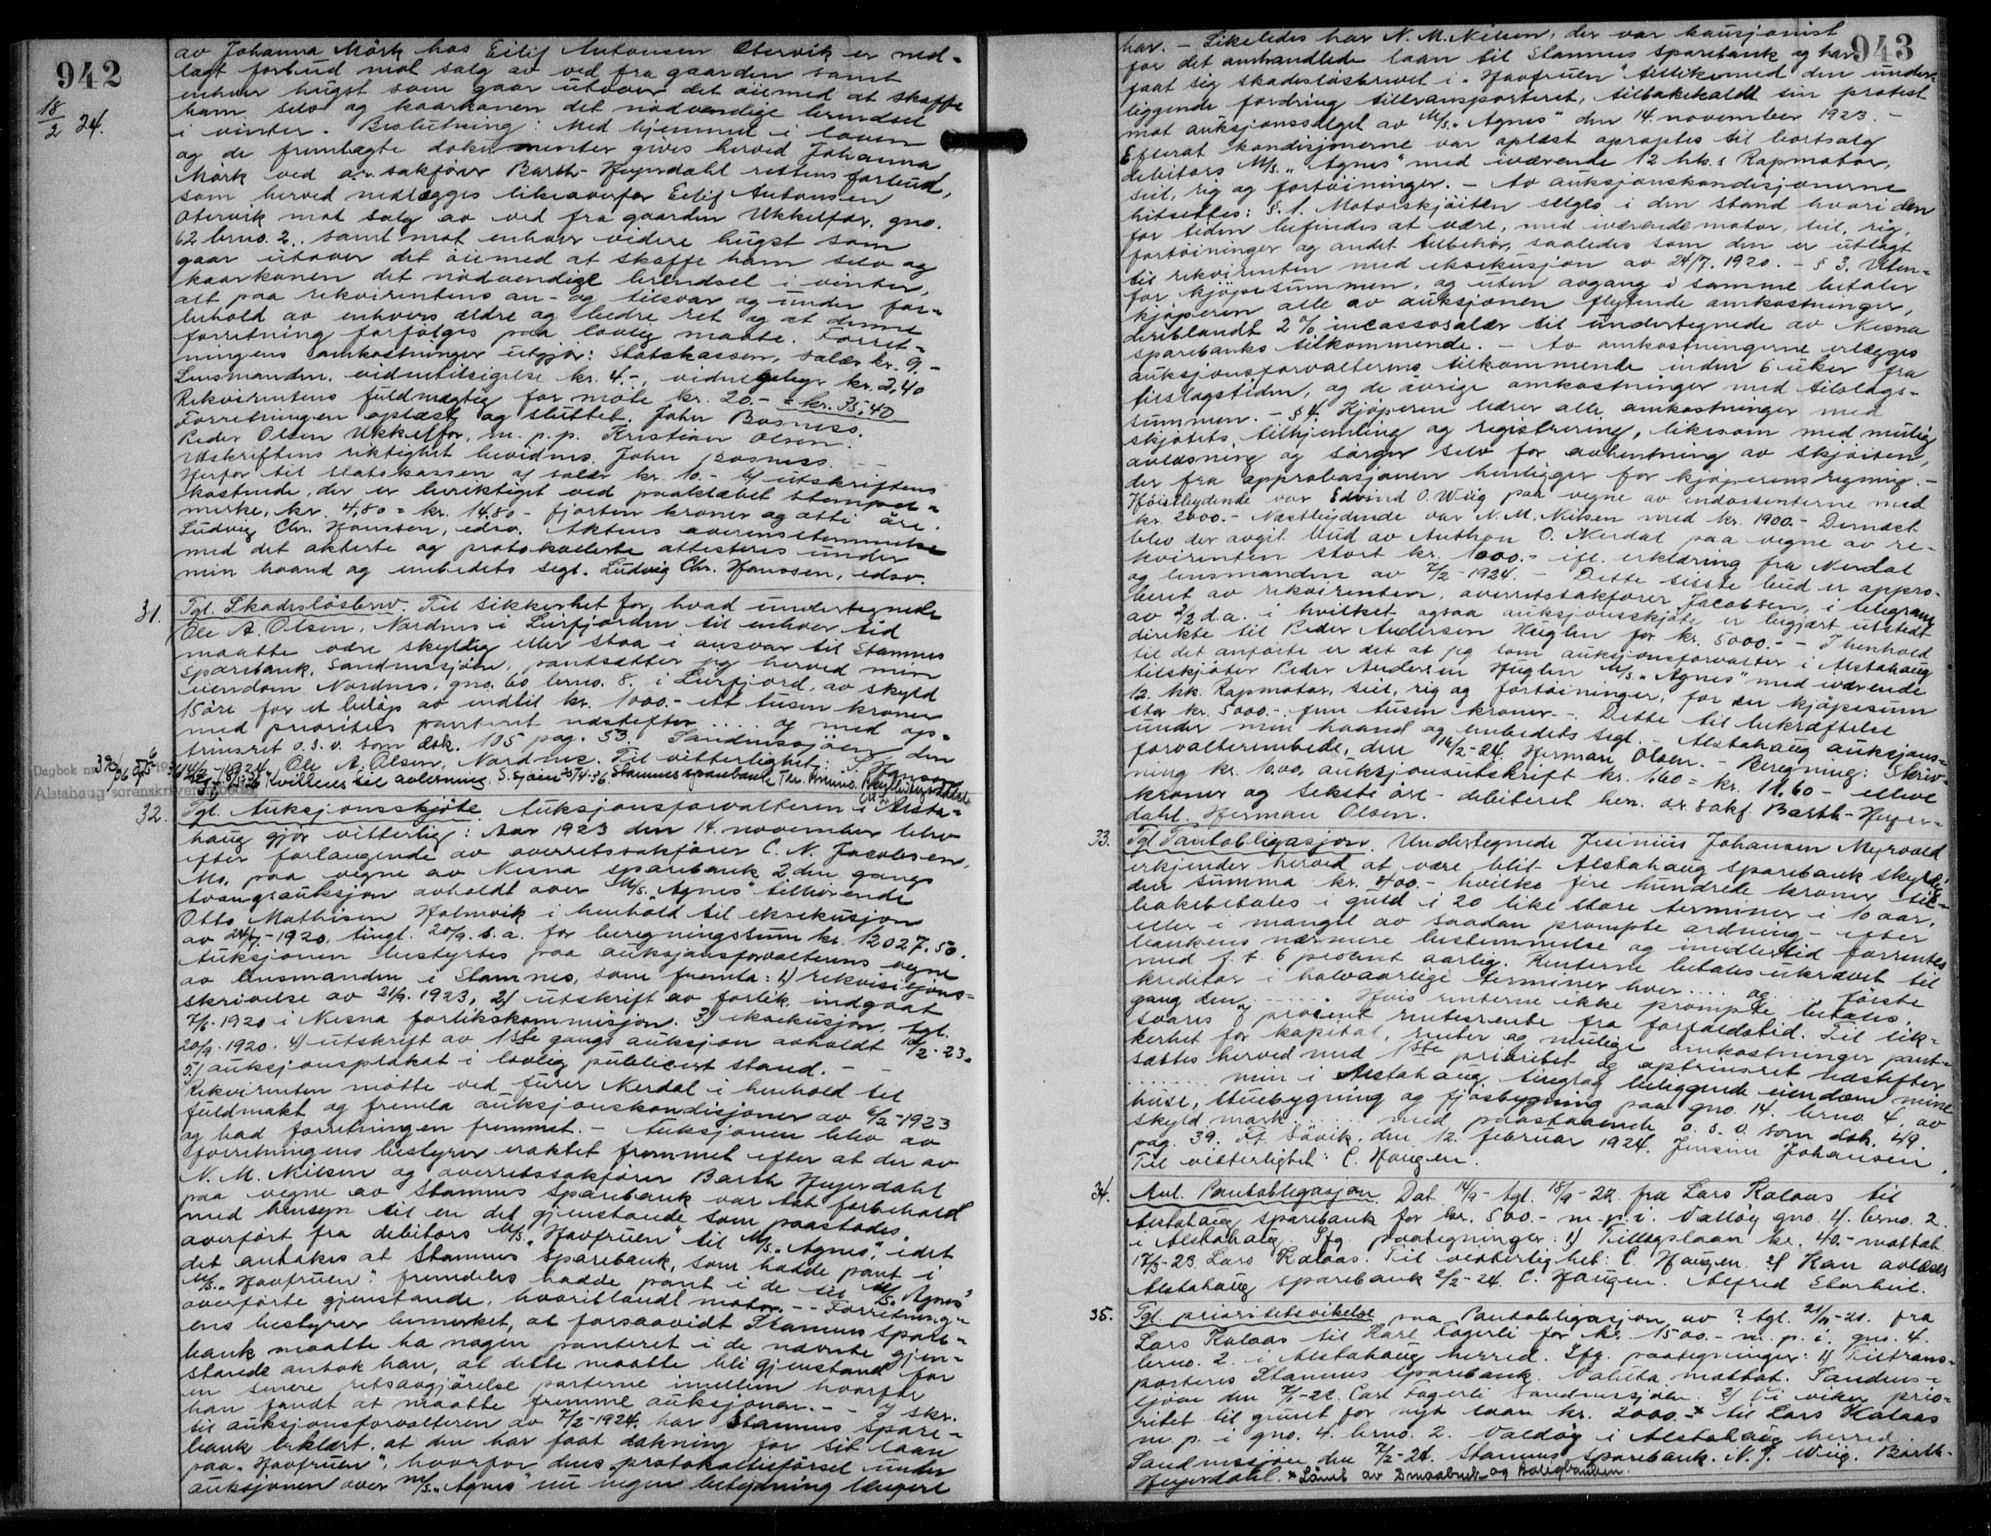 942
18/2 24.
av Johanna Mörk hos Eilif Antonsen Otervik er ned-
lagt forbud mot salg av ved fra gaarden samt
enhver hugst som gaar utover det öiemed at skaffe
ham selv og kaarkonen det nödvendige brendsel
i vinter. Beslutning: Med hjemmel i loven
og de fremlagte dokumenter gives herved Johanna
Mörk ved o.r. sakförer Barth-Heyerdahl rettens forbud,
som herved nedlegges likeoverfor Eilif Antonsen
Otervik mot salg av ved fra gaarden Ukkelför, gno.
62 brno. 2, samt mot enhver videre hugst som
gaar utover det öiemed at skaffe ham selv og
kaarkonen det nödvendige brendsel i vinter,
alt paa rekvirentens an- og tilsvar og under for-
behold av enhvers ældre og bedre ret og at denne
forretning forfölges paa lovlig maate. Forret-
ningens omkostninger utgjör: Statskassen, salær kr. 9.-
Lensmanden, vidnetilsigelse kr. 4.-, vidnegebyr kr. 2,40
Rekvirentens fuldmægtig for möte kr. 20.- = kr. 35,40
Forretningen oplæst og sluttet. John Bosness.
Peder Olsen Ukkelför, m. p. p. Kristian Olsen.
Utskriftens riktighet bevidnes. John Bosness.
Herfor til statskassen a/ salær kr. 10.- b/ utskriftens
kostende, der er beriktiget ved paaklæbet stempel-
merke, kr. 4,80 = kr. 14,80 - fjorten kroner og otti öre.
Ludvig Chr. Hanssen, edsv. Aktens overensstemmelse
med det akterte og protokollerte attesteres under
min haand og embedets segl. Ludvig Chr. Hanssen, edsv.
31. Tgl. Skadeslösbrev. Til sikkerhet for, hvad undertegnede
Ole A. Olsen, Nordnes i Leirfjorden til enhver tid
maatte være skyldig eller staa i ansvar til Stamnes
Sparebank, Sandnessjöen, pantsætter jeg herved min
eiendom Nordnes, gno. 60 brno. 8. i Leirfjord, av skyld
15 öre for et belöp av indtil kr. 1000.- ett tusen kroner
med prioritets panteret næstefter .... og med op-
trinsret o.s.v. som dok. 105 pag. 53. Sandnessjöen den
14/2-1924. Ole A. Olsen, Nordnes. Til vitterlighet:
Kvitteres til avlesning. S.sjöen 25/4-36. Stamnes sparebank
Alstahaug sorenskriverembede
32. Tgl. Auksjonsskjöte. Auksjonsforvalteren i Alsta-
haug gjör vitterlig: Aar 1923 den 14. november blev
efter forlangende av overretssakförer C. N. Jacobsen,
Mo, paa vegne av Nesna sparebank 2den gangs
tvangsauksjon avholdt over M/S. "Agnes" tilhörende
Otto Mathisen Holmvik i henhold til eksekusjon
av 24/7-1920, tingl. 20/9. s.a. for beregningssum kr. 12027.50.
Auksjonen bestyrtes paa auksjonsforvalterens vegne
av lensmanden i Stamnes, som fremla: 1) rekvisisjons-
skrivelse av 21/9. 1923, 2) utskrift av forlik indgaat
7/6. 1920 i Nesna forlikskommisjon. 3) eksekusjon, tgl.
20/9. 1920. 4) utskrift av 1ste gangs auksjon avholdt 10/2-23.
5) auksjonsplakat i lovlig publicert stand. - -
Rekvirenten mötte ved fører Nerdal i henhold til
fuldmakt og fremla auksjonskondisjoner av 6/2-1923
og bad forretningen fremmet. - Auksjonen blev av
forretningens bestyrer eraktet fremmet efter at der av
N. M. Nilsen og overretssakförer Barth Heyerdahl
paa vegne av Stamnes Sparebank var tat forbehold
med hensyn til en del gjenstande som paastodes
overfört fra debitors M/S. "Havfruen" til M/S. "Agnes", idet
det antokes at Stamnes Sparebank, som hadde pant i
M/S. "Havfruen", fremdeles hadde pant i de til M/S. "Agnes"
overförte gjenstande, hvoriblandt motor. - - Forretning-
ens bestyrer bemerket, at forsaavidt Stamnes Spare-
bank maatte ha nogen panteret i de nævnte gjen-
stande antok han, at dette maatte bli gjenstand for
en senere retsavgjörelse parterne imellem hvorfor
han fandt at maatte fremme auksjonen. - - I skr.
til auksjonsforvalteren av 7/2-1924 har Stamnes Spare-
bank erklært, at den har faat dækning for sit laan
paa "Havfruen", hvorfor dens protokollatförsel under
auksjonen over M/S. "Agnes" nu ingen betydning længere
943
har. - Likeledes har N. M. Nilsen, der var kausjonist
for det omhandlede laan til Stamnes Sparebank og har
faat sig skadeslösbrevet i "Havfruen" tillikemed den under-
liggende fordring tiltransporteret, tilbakekaldt sin protest
mot auksjonssalget av M/S. "Agnes" den 14. november 1923. -
Efterat kondisjonerne var oplæst opraptes til bortsalg
debitors M/S. "Agnes" med iværende 12 hk.s Rapmotor,
seil, rig og fortöininger. - Av auksjonskondisjonerne
hitsettes: §. 1. Motorskjöiten selges i den stand hvori den
for tiden befindes at være, med iværende motor, seil, rig,
fortöininger og andet tilbehör, saaledes som den er utlagt
til rekvirenten med eksekusjon av 24/7. 1920. - § 3. Uten-
for kjöpesummen, og uten avgang i samme betaler
kjöperen alle av auksjonen flytende omkostninger,
deriblandt 2 % incassosalær til undertegnede av Nesna
sparebanks tilkommende. - Av omkostningerne erlægges
auksjonsforvalterens tilkommende inden 6 uker fra
tilslagstiden, og de övrige omkostninger med tilslags-
summen. - § 4. Kjöperen bærer alle omkostninger med
skjötets, tilhjemling og registrering, likesom med mulig
avlösning og sörger selv for avhentning av skjöiten,
der fra approbasjonen henligger for kjöperens regning. -
Höistbydende var Edvind O. Wiig paa vegne av endossenterne med
kr. 2000.- Næstbydende var N. M. Nilsen med kr. 1900.- Dernæst
blev der avgit bud av Anthon O. Nerdal paa vegne av re-
kvirenten stort kr. 1000.- ifl. erklæring fra Nerdal
og lensmanden av 7/2-1924. - Dette siste bud er appro-
beret av rekvirenten, overretssakförer Jacobsen, i telegram
av 2/2 d.a. i hvilket ogsaa auksjonsskjöte er begjært utstedt
direkte til Peder Andersen Huglen for kr. 5000.- - I henhold
til det anförte er det at jeg som auksjonsforvalter i Alstahaug
tilskjöter Peder Andersen Huglen M/S. "Agnes" med iværende
12 hk. Rapmotor, seil, rig og fortöininger, for en kjöpesum
stor kr. 5000.- fem tusen kroner. - Dette til bekræftelse
under min haand og embedets segl. - Alstahaug auksjons-
forvalterembede, den 16/2-24. Herman Olsen. - Beregning: Skriv-
ning kr. 10.00, auksjonsutskrift kr. 1.60 = kr. 11.60 - elleve
kroner og seksti öre - debiteret hr. o.r. sakf. Barth-Heyer-
dahl. Herman Olsen.
33. Tgl. Pantobligasjon. Undertegnede Jesinius Johansen Myrvold
erkjender herved at være blit Alstahaug Sparebank skyldig
den summa kr. 400.- hvilke fire hundrede kroner til-
bakebetales i guld i 20 like store terminer i 10 aar,
eller i mangel av saadan prompte ordning - efter
bankens nærmere bestemmelse og imidlertid forrentes
med f. t. 6 procent aarlig. Renterne betales ukrævet til
kreditor i halvaarlige terminer hver .... og .... förste
gang den ........ Hvis renterne ikke prompte betales,
svares 7 procent rentesrente fra forfaldstid. Til sik-
kerhet for kapital, renter og mulige omkostninger pant-
sættes herved med 1ste prioritet og optrinsret næstefter
...... min i Alstahaug tinglag beliggende eiendom mine
huse, stuebygning og fjösbygning paa gno. 14. brno. 4. av
skyld mark ..... med paastaaende o. s. v. som dok. 49.
pag. 39. P.t. Sövik, den 12. februar 1924. Jensine Johansen.
Til vitterlighet: C. Haugen.
34. Avl. Pantobligasjon. Dat. 14/9- tgl. 18/9-22. fra Lars Kalaas til
Alstahaug sparebank for kr. 500.- m. p. i. Valöy gno. 4. brno. 2.
i Alstahaug. Lfg. paategninger: 1) Tillegslaan kr. 40.- mottat
17/3-23 Lars Kalaas. Til vitterlighet: C. Haugen. 2) Kan avlæses
Alstahaug sparebank 2/2-24. C. Haugen. Alfred
35. Tgl. prioritetsvikelse paa Pantobligasjon av ? tgl. 21/11-21. fra
Lars Kalaas til Karl Fagerli for kr. 1500.- m. p. i. gno. 4.
brno. 2. i Alstahaug herred. Lfg. paategninger: 1) Tiltrans-
porteres Stamnes sparebank. Valuta mottat. Sandnes-
sjöen den 7/1-22. Carl Fagerli Sandnessjöen. 2) Vi viker prio-
ritet til gunst for nyt laan kr. 2000.-x til Lars Kalaas
m. p. i gno. 4. brno. 2. Valöy i Alstahaug herred.
Sandnessjöen den 7/2-24. Stamnes Sparebank. N. J. Wiig. Barth-
Heyerdahl. x Laant av Smaabruk og Boligbanken.